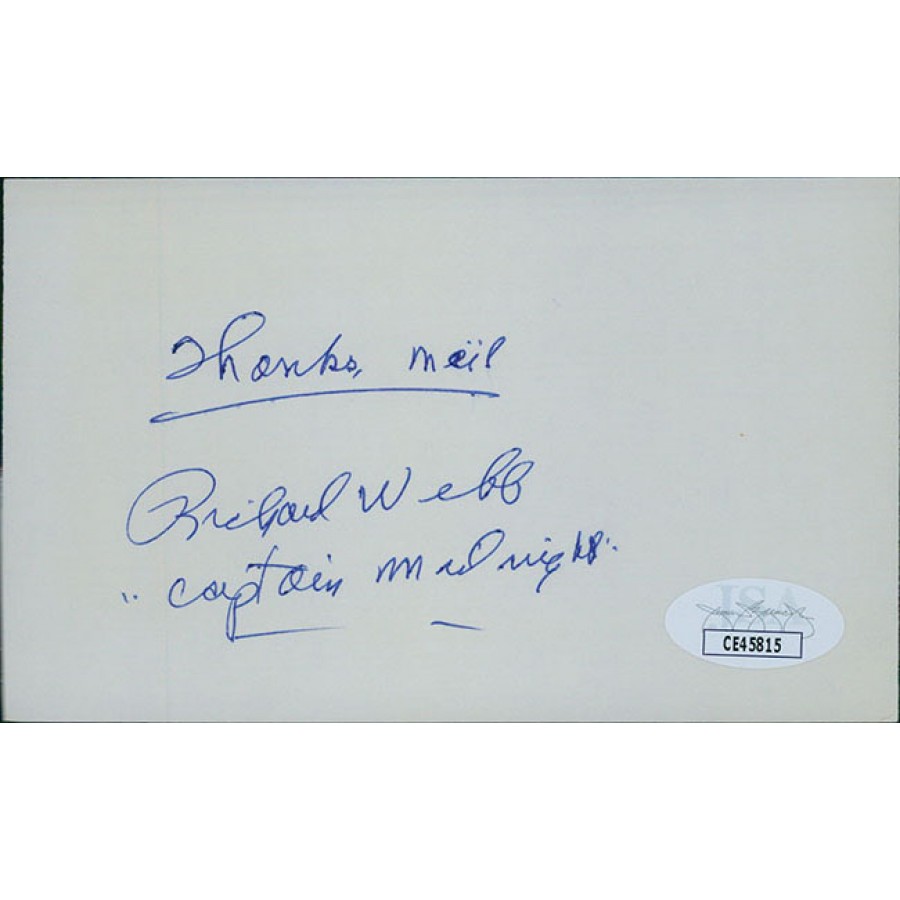 Thanks, Neil
Richard Webb
"Captain Midnight"
JSA
CE45815